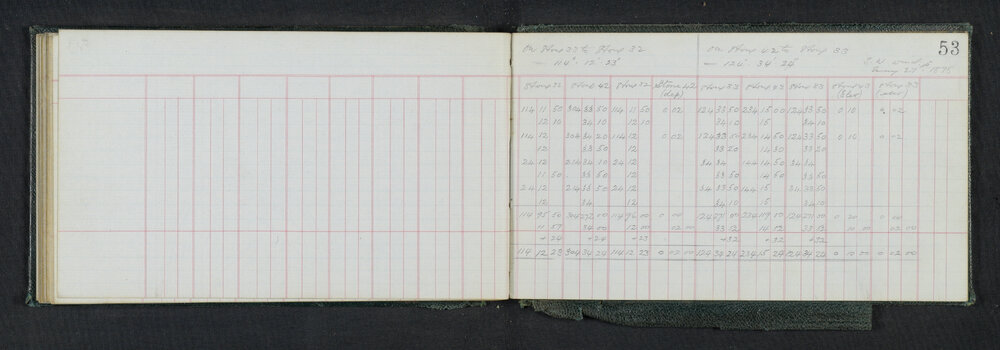 53
on Stone 33 to Stone 32
— 114° 12' 23"
on Stone 42 to Stone 33
— 124° 34' 24"
1895
Stone 32 Stone 42 Stone 32 Stone 42 (dep) Stone 33 Stone 43 Stone 33
114 11 50 304 33 50 114 11 50 0 02 124 33 50 234 15 00 124 33 50 0 10 0 02
12 10 34 10 12 10 34 10 15 34 10
114 12 304 34 20 114 12 0 02 124 33 50 234 14 50 124 33 50 0 10 0 02
12 33 50 12 33 20 14 30 33 20
24 12 214 34 10 24 12 34 34 14 50 34 34
11 50 33 50 12 33 50 14 50 33 50
24 12 214 33 50 24 12 34 33 50 144 15 34 33 50
12 34 12 34 10 15 34 10
114 95 50 304 272 00 114 96 00 0 00 124 271 00 234 119 00 124 271 00 0 20 0 00
11 57 34 00 12 00 02 00 33 12 14 12 33 12 10 00 02 00
+24 +24 +23 +32 +32 +32
114 12 23 304 34 24 114 12 23 0 02 00 124 34 24 234 15 24 124 34 24 0 10 00 0 02 00